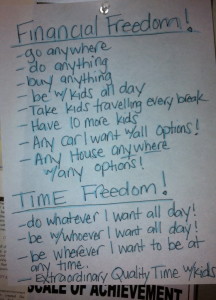 Financial Freedom!
- go anywhere
- do anything
- buy anything
- be w/ kids all day
- Take kids travelling every break
- Have 10 more kids
- Any car I want w/all options!
- Any House anywhere
w/any options!
Time Freedom!
- do whatever I want all day!
- be w/whoever I want all day!
- be wherever I want to be at
any time.
- Extraordinary Quality Time w/kids
SCALE OF ACHIEVEMENT